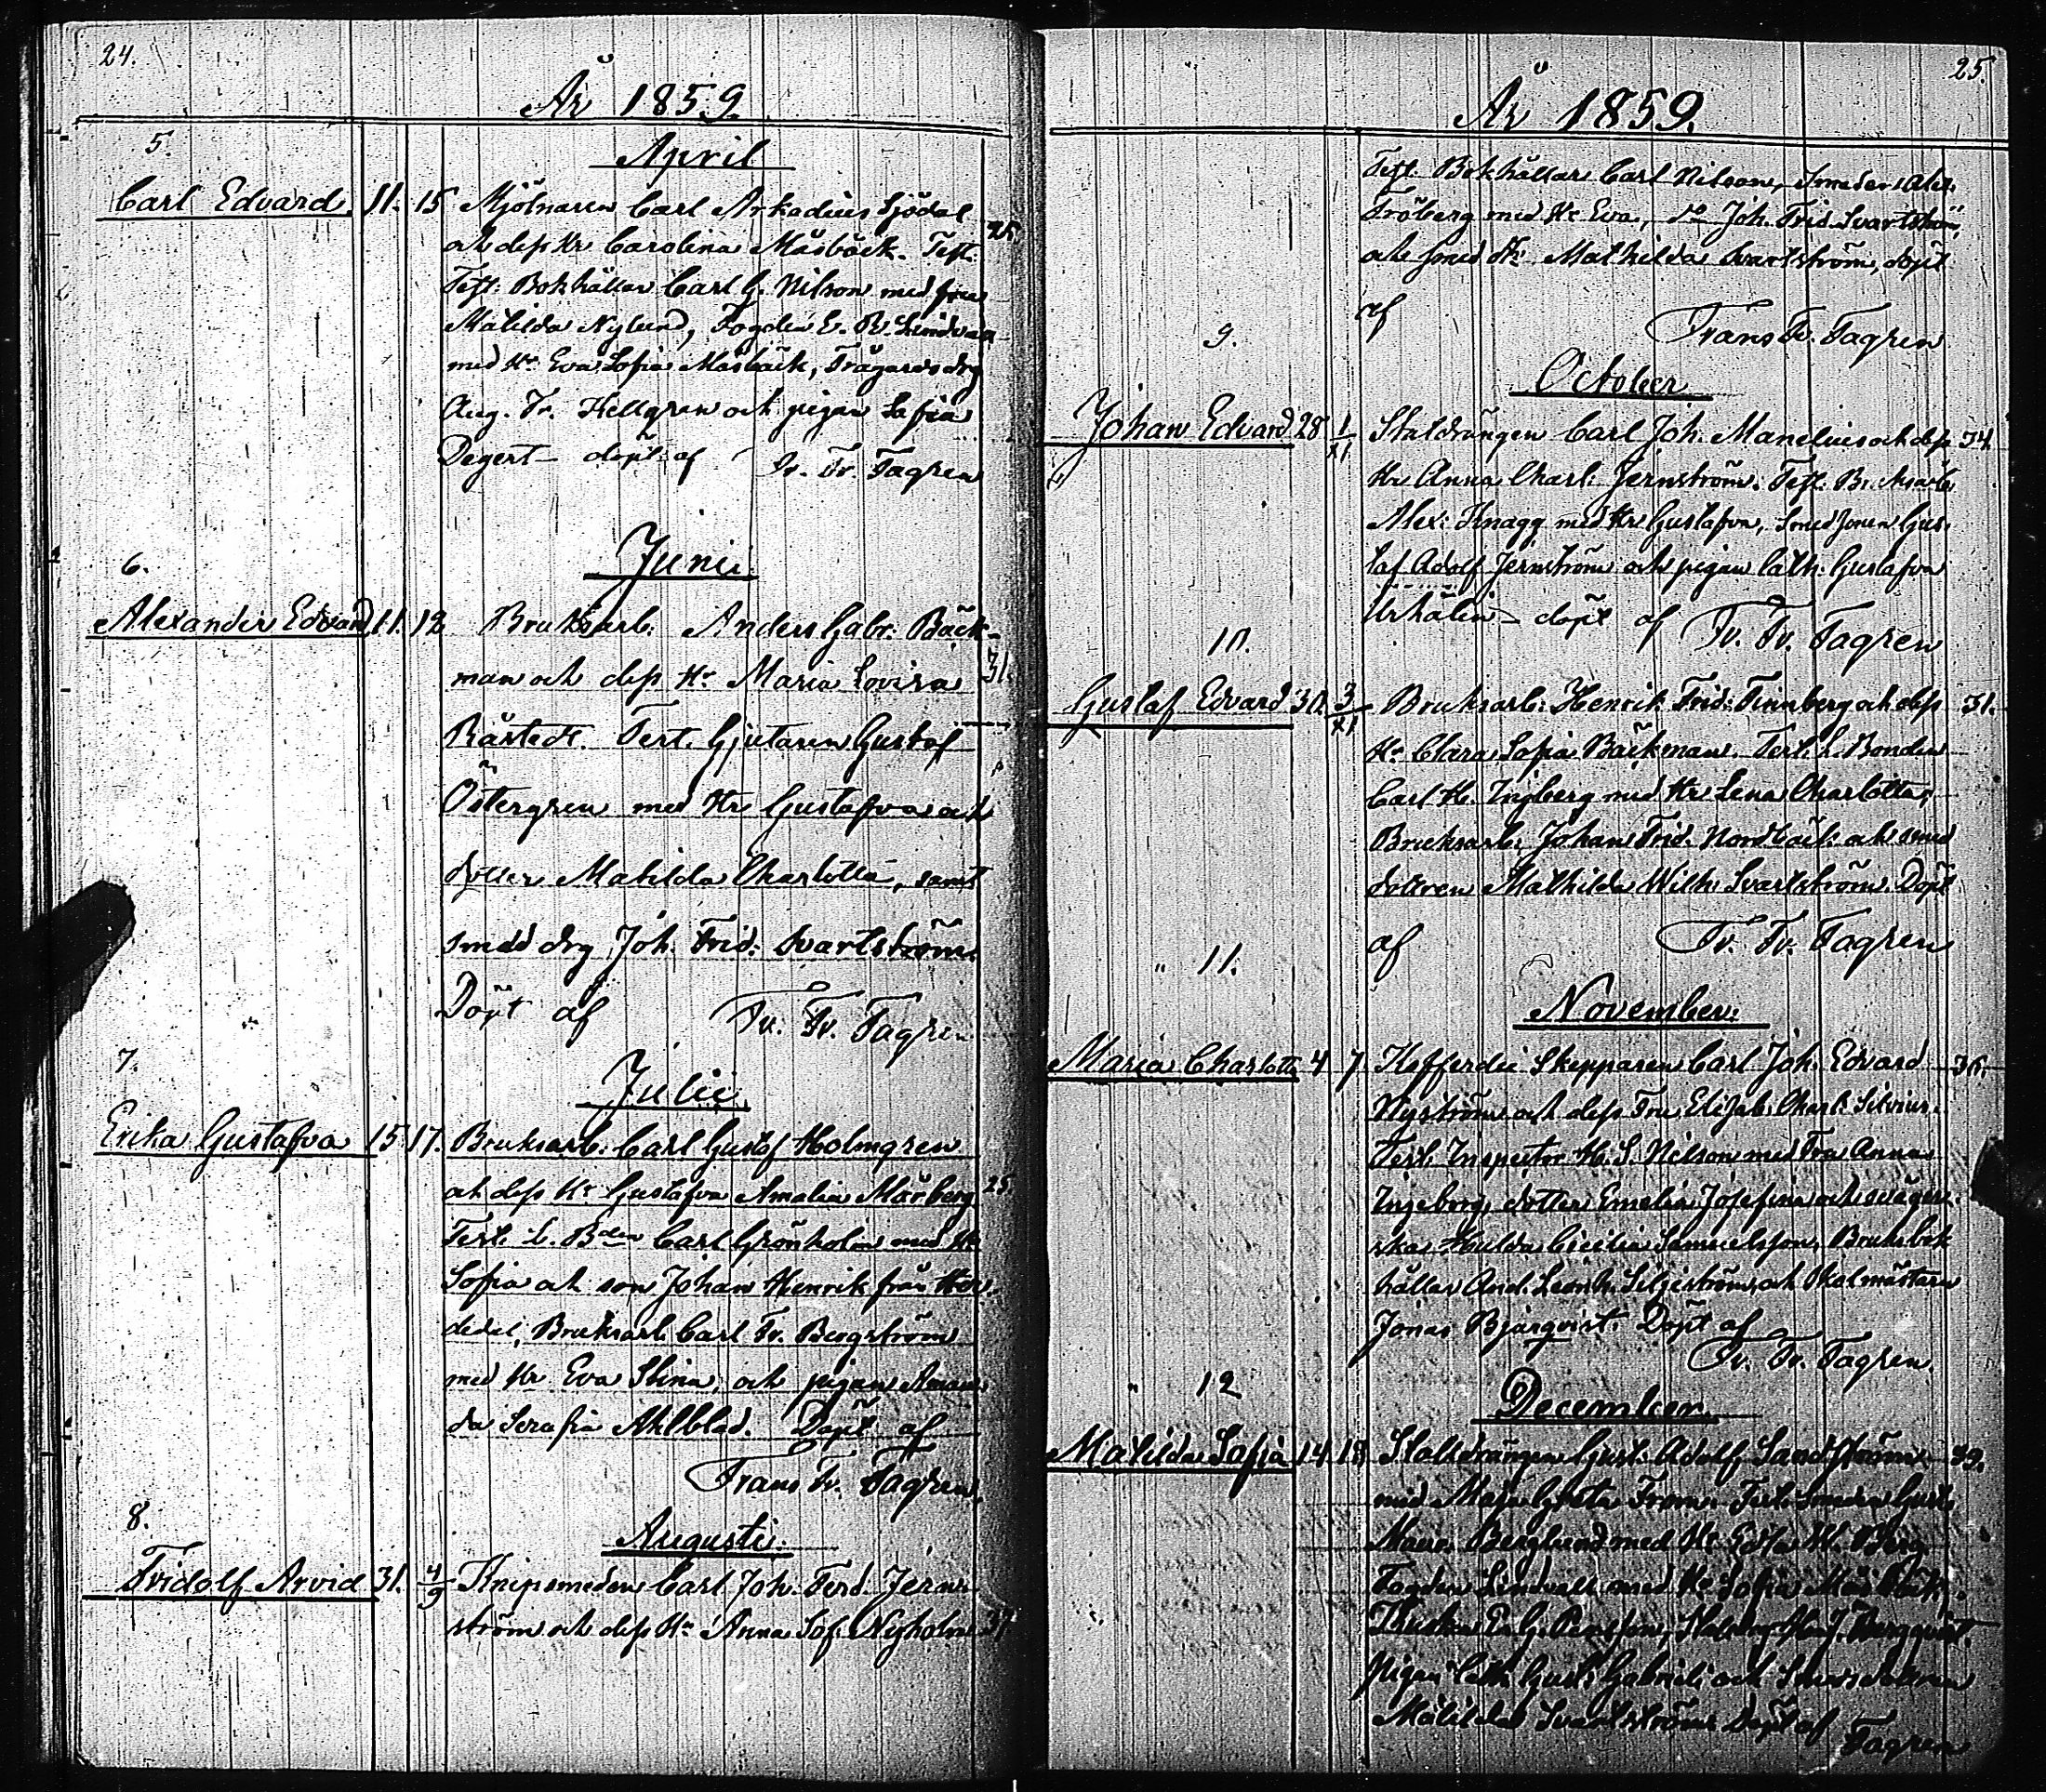 24.
År 1859.
April
5.
Carl Edvard. 11. 15 Mjölnaren Carl Arkadius Sjödal
och dess Hr Carolina Måsbäck. Test. 25.
Test. Bokhållar Carl G. Nilson med fru
Matilda Nylund, Fogden E. R. Lindvall
med Hr Eva Sofia Måsbäck, Trägårdsdrg
Aug. Fr. Hellgren och pigan Sofia
Degert – döpt af Fr. Fr. Tagren
Junii
6.
Alexander Edvard 11. 12 Bruksarb. Anders Gabr. Bäck-
man och dess Hr Maria Lovisa 31.
Råstedt. Test. Gjutaren Gustaf
Östergren med Hr Gustafva och
dotter Matilda Charlotta, samt
smed drg Joh. Frid. Svartström.
Döpt af Fr. Fr. Tagren
Julii
7.
Erika Gustafva 15 17. Bruksarb. Carl Gustaf Holmgren
och dess Hr Gustafva Amalia Mårberg 25.
Test. L. Bden Carl Grönholm med Hr
Sofia och son Johan Henrik från
Bruksarb. Carl Fr. Bergström
med Hr Eva Stina, och pigan Aman
da Serafia Ahlblad. Döpt af
Frans Fr. Tagren.
Augusti.
8.
Fridolf Arvid 31. 4/9 Knipsmeden Carl Joh. Ferd. Jern-
ström och dess Hr Anna Sof. Nyholm 37
25.
År 1859.
Test. Bokhållar Carl Nilson, Smeden Alex.
Fröberg med Hr Eva, do Joh. Frid. Svartström,
och smed Hr Mathilda Svartström, döpt
af
Frans Fr. Tagren
October
9.
Johan Edvard 28 1/XI Staldrängen Carl Joh. Manelius och dess 34
Hr Anna Charl. Jernström. Test. Br.
Alex. Knagg med Hr Gustafva, Gus-
taf Adolf Jernström och pigan Cath. Gustafva
– döpt af Fr. Fr. Tagren
10.
Gustaf Edvard 30. 3/XI Bruksarb. Henrik Frid. Finnberg och dess 31.
Hr Clara Sofia Bäckman. Test. L. Bonden
Carl H. Ingberg med Hr Lena Charlotta,
Bruksarb. Johan Frid. Nordbäck och smed
dottren Mathilda Wilh. Svartström. Döpt
af Fr. Fr. Tagren
" 11.
November.
Maria Charlotta 4 7 Kofferdie Skepparen Carl Joh. Edvard 36.
Nyström och dess Fru Elisab. Charl. Silvius.
Test. Inspector H. S. Nilson med Fru Anna
Ingeborg, dotter Emelia Josefina och svägers-
ka Hulda Cicilia Samuelsson, Bruksbok
hållar And. Leonh. Siljeström, och Skolmästaren
Jonas Bjarqvist. Döpt af
Fr. Fr. Tagren.
" 12
December.
Matilda Sofia 14 18 Stalldrängen Gust. Adolf Sandström 39.
med Maja Greta From. Test. Smeden Gust.
Berglund med Hr W. Berg
Fogden Lindvall med Hr Sofia Måsbäck,
Bergqvist.
Pigan Cath. Gust. Gabriels och
Matilda Svartström Döpt af
Tagren